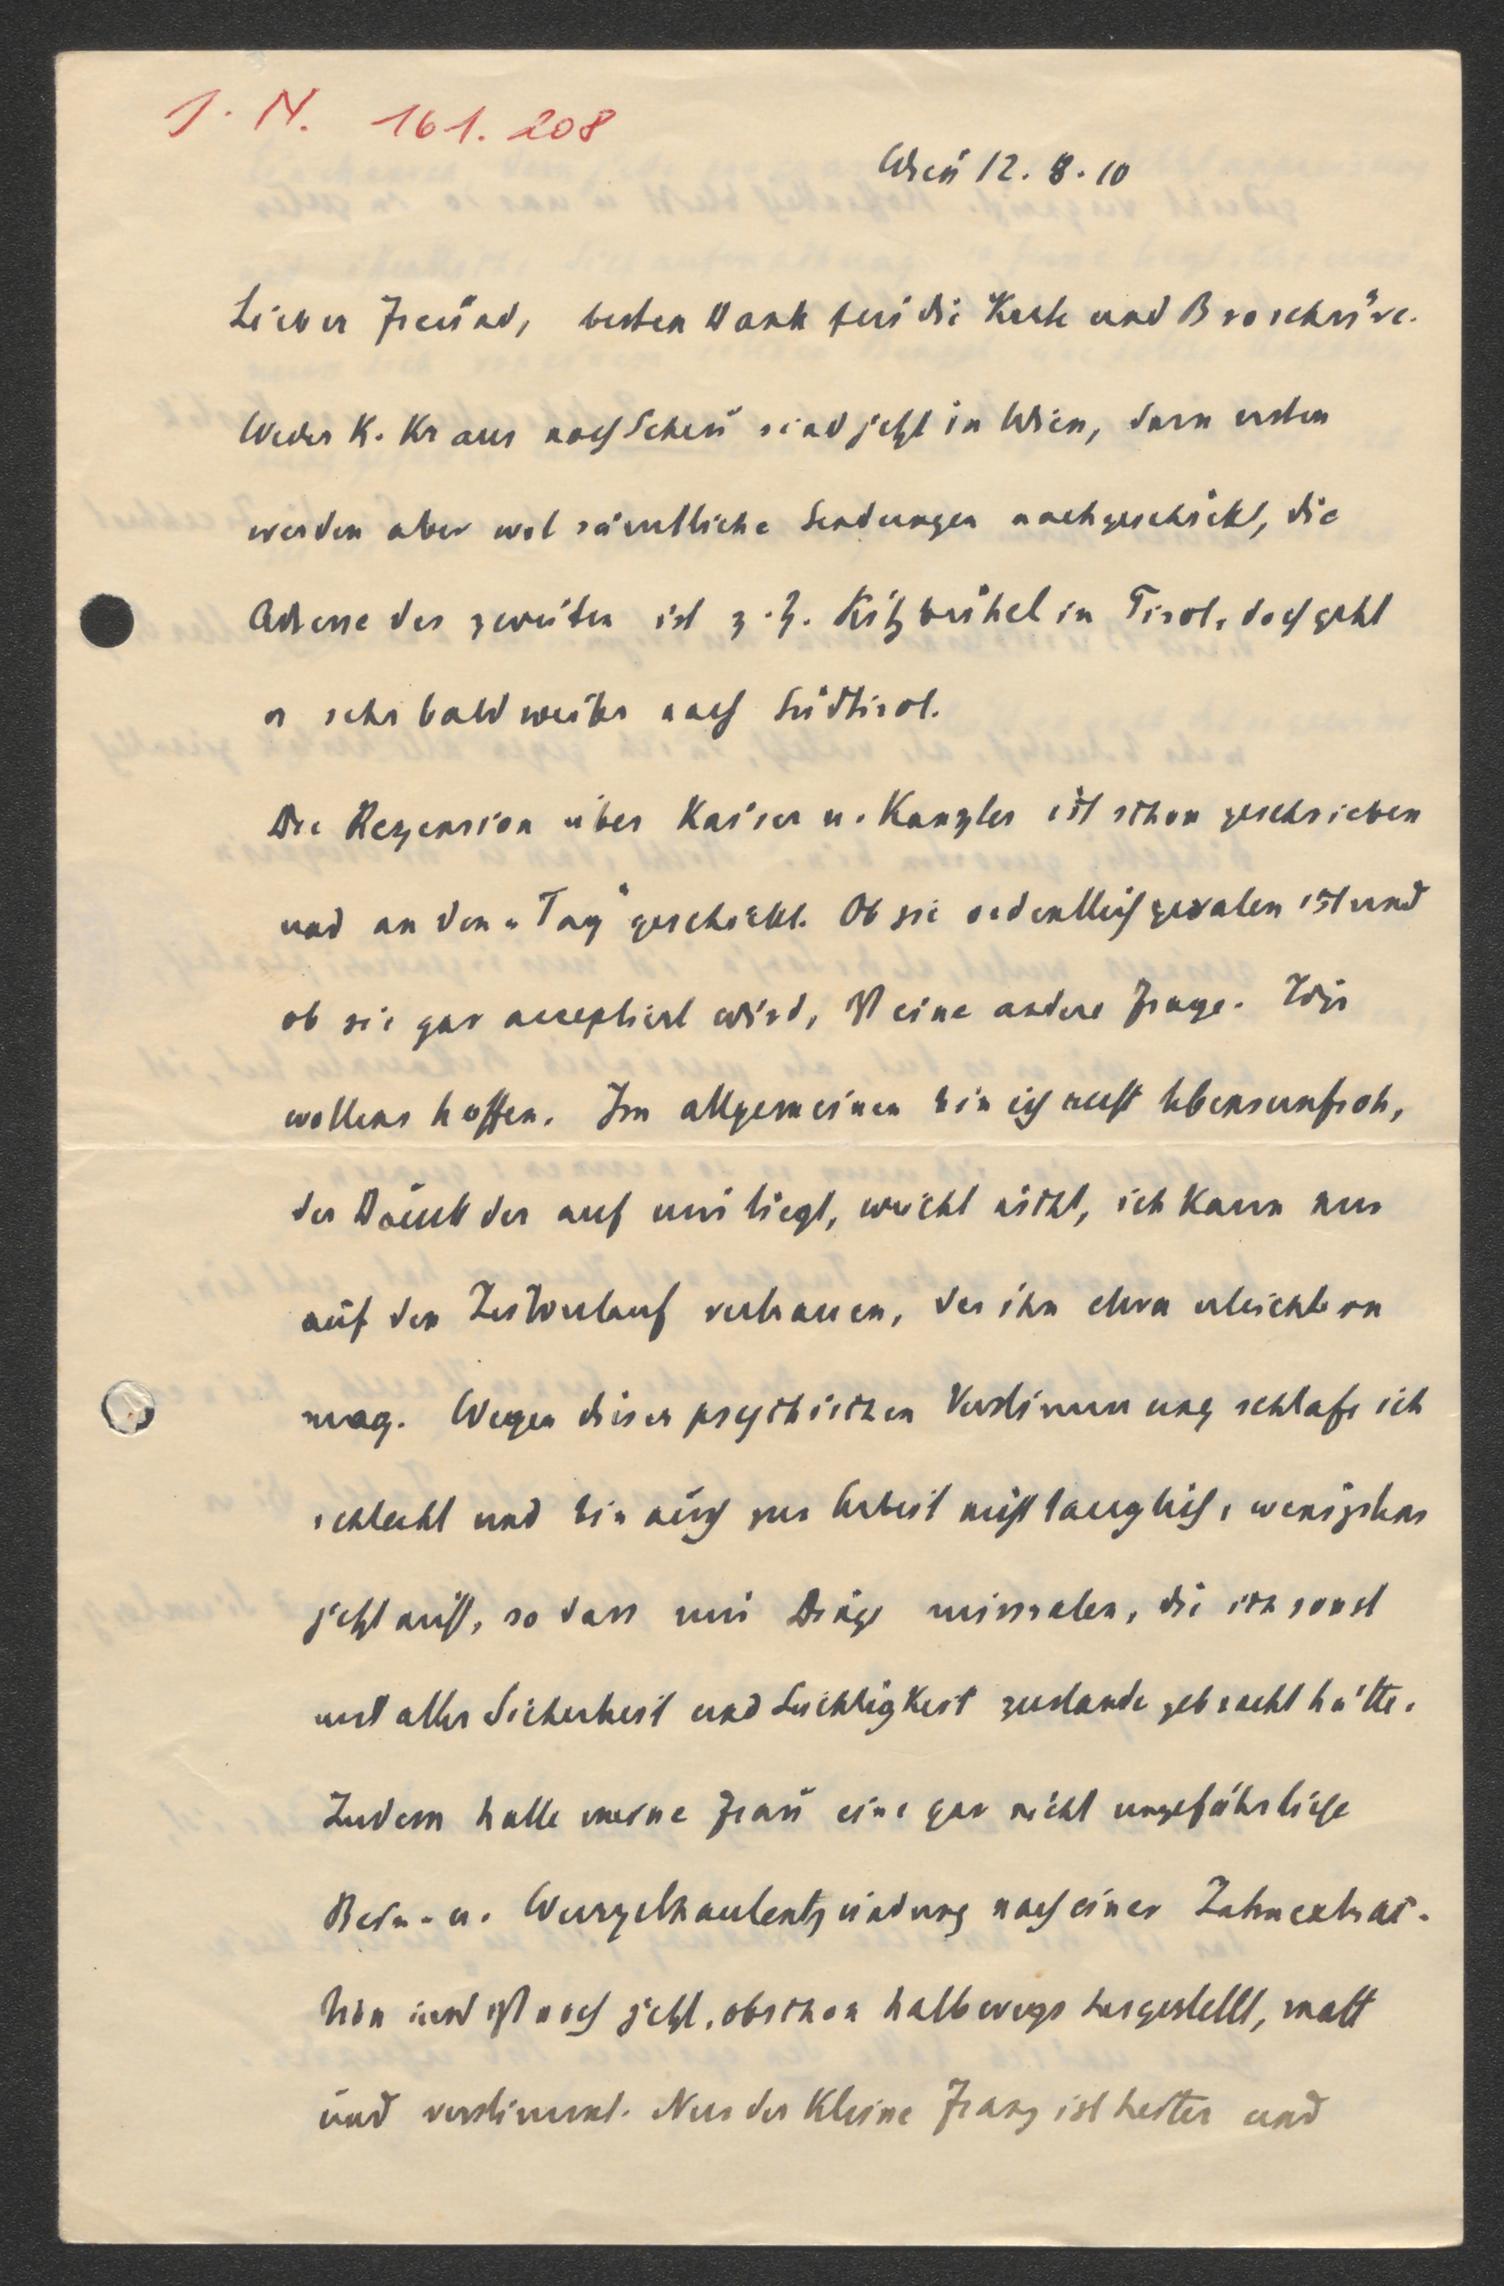 J. N. 161.208
Wien 12. 8. 10
Lieber Freund, besten Dank für die Karte und Broschüre.
Weder K. Kraus noch Scheu sind jetzt in Wien, dem ersten
werden aber wol sämtliche Sendungen nachgeschickt, die
Adresse des zweiten ist z. Z. Kitzbühel in Tirol, doch geht
er sehr bald weiter nach Südtirol.
Die Rezension über Kaiser u. Kanzler ist schon geschrieben
und an den „Tag" geschickt. Ob sie ordentlich geraten ist und
ob sie gar acceptiert wird, ist eine andere Frage. Wir
wollens hoffen. Im allgemeinen bin ich recht lebensunfroh,
der Druck der auf mir liegt, weicht nicht, ich kann nur
auf den Zeitverlauf vertrauen, der ihn etwa erleichtern
mag. Wegen dieser psychischen Verstimmung schlafe ich
schlecht und bin auch zur Arbeit nicht tauglich, wenigstens
jetzt nicht, so dass mir Dinge missraten, die ich sonst
mit aller Sicherheit und Leichtigkeit zustande gebracht hätte.
Zudem hatte meine Frau eine gar nicht ungefährliche
Bein- u. Wurzelhautentzündung nach einer Zahnextrac-
tion und ist noch jetzt, obschon halbwegs hergestellt, matt
und verstimmt. Nur der kleine Franz ist heiter und